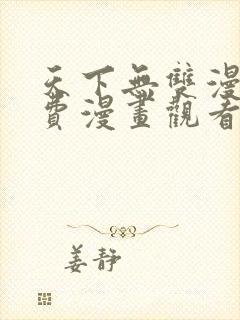 天下無雙漫
費漫畫觀看
姜静